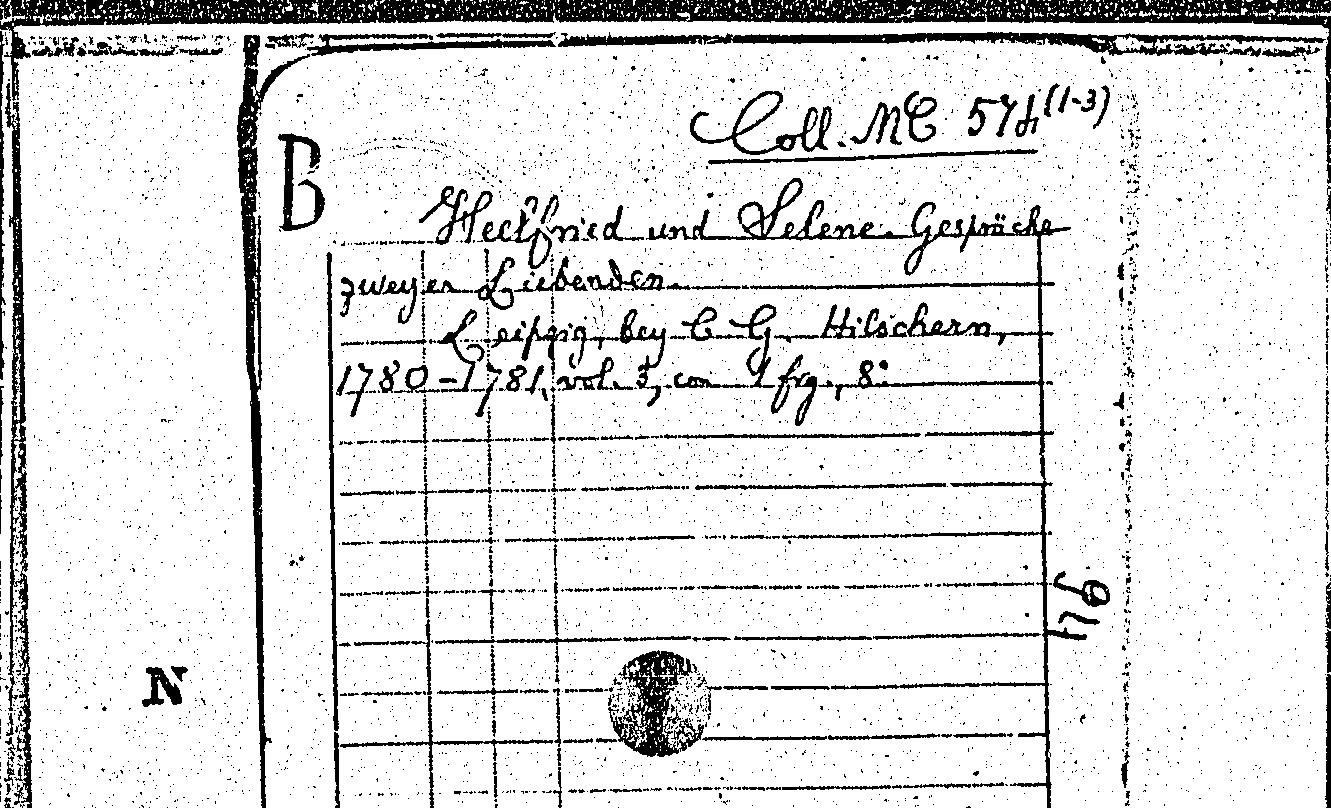 Coll. MC 574(1-3)
B
Heckfried und Selene. Gespräche
zweyer Liebenden.
Leipzig, bey C G. Hilschern,
1780-1781, vol. 3, con 1 frg., 8°
N